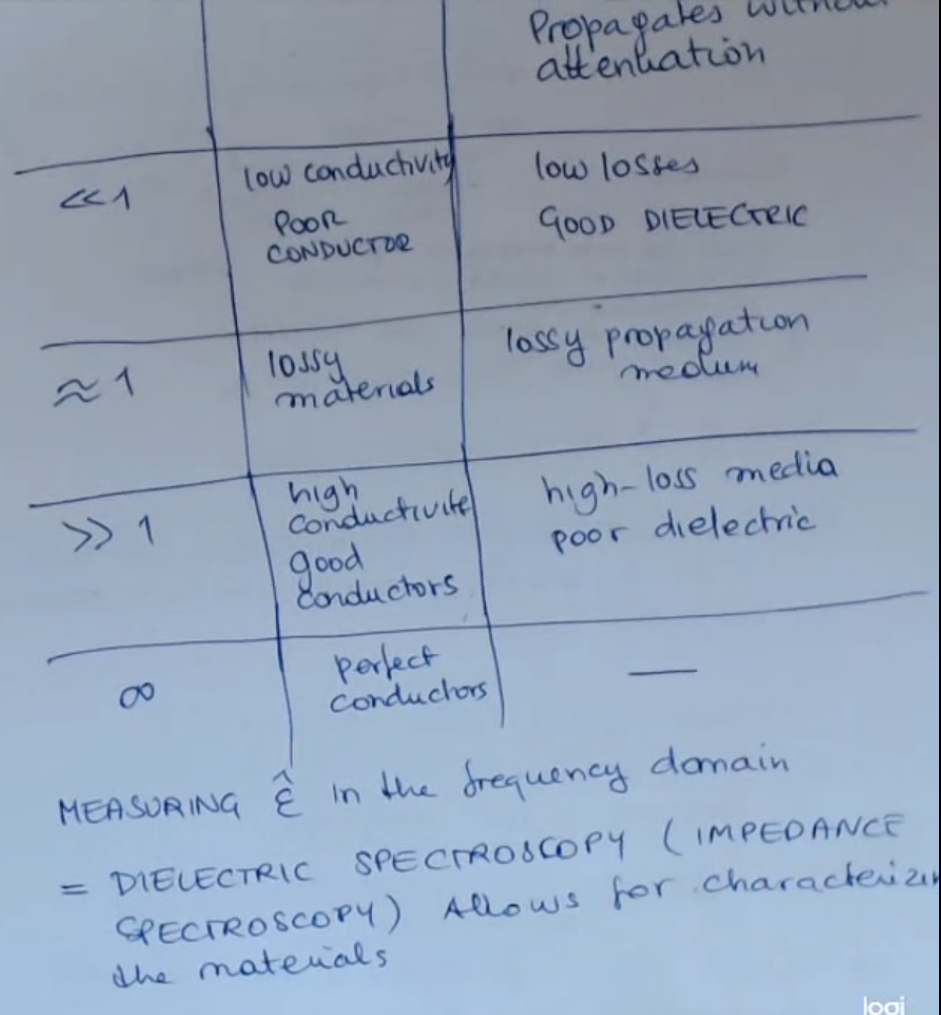 Propagates without
attenuation
<<1
low conductivity
POOR
CONDUCTOR
low losses
GOOD DIELECTRIC
≈ 1
lossy
materials
lossy propagation
medium
>> 1
high
conductivite
good
conductors
high-loss media
poor dielectric
∞
perfect
conductors
—
MEASURING ε̂ in the frequency domain
= DIELECTRIC SPECTROSCOPY (IMPEDANCE
SPECTROSCOPY) Allows for characterizin
the materials
logi